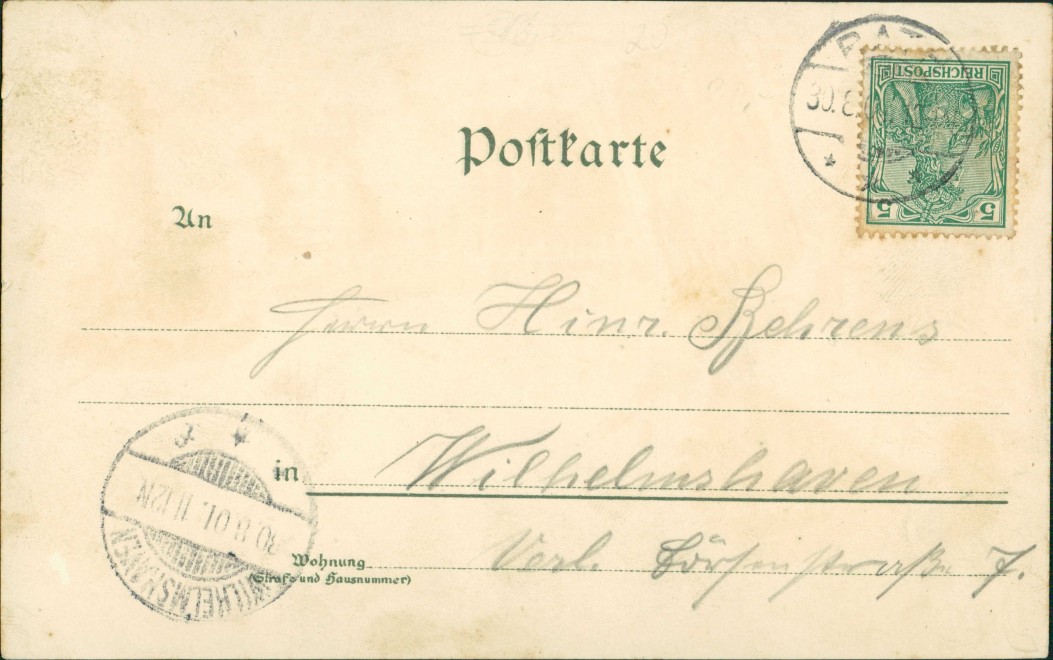 Postkarte
REICHSPOST
5 5
30.8
An
Herrn Hinr. Behrens
in Wilhelmshaven
30.8.01.11-12N.
WILHELMSHAVEN
Wohnung
(Straße und Hausnummer)
Verl. Börsenstraße 7.